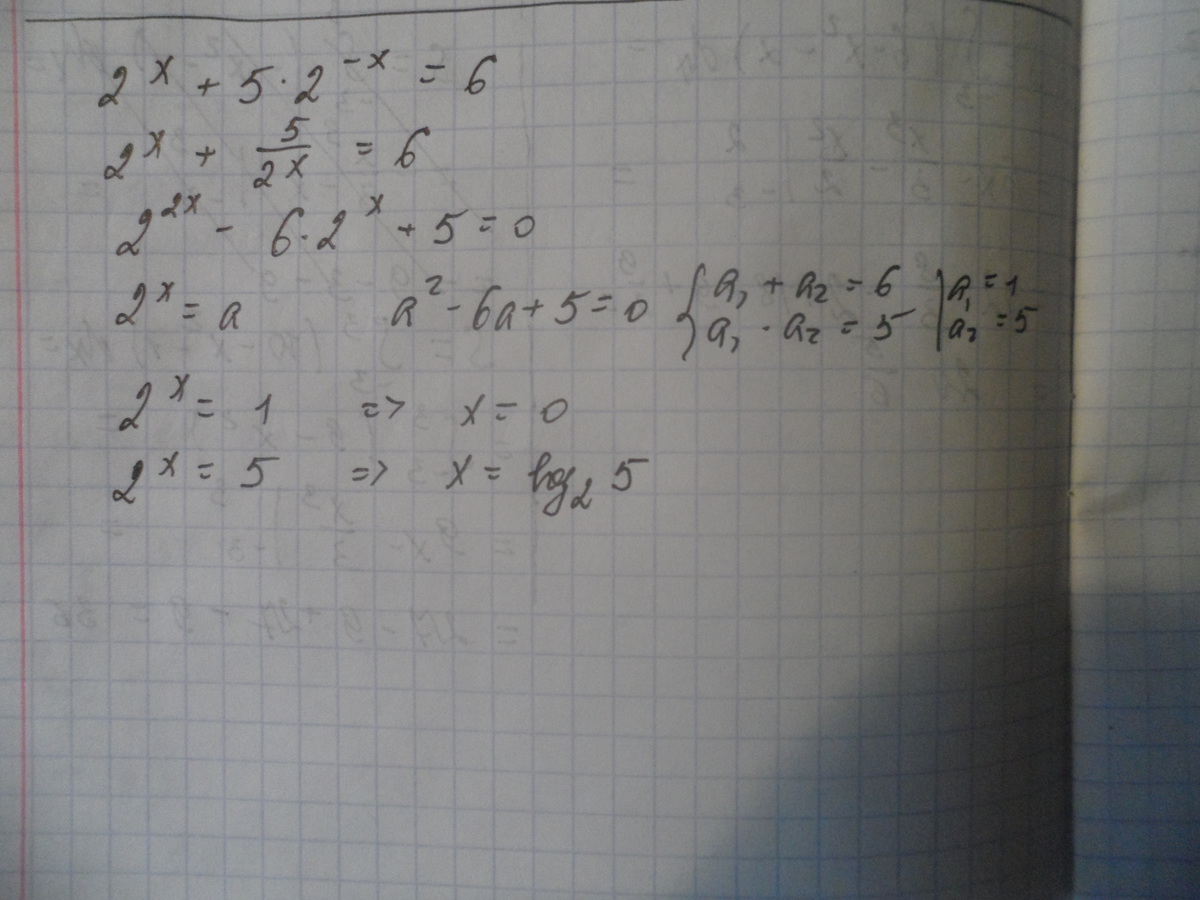 2^x + 5 · 2^-x = 6
2^x + 5/2^x = 6
2^2x - 6 · 2^x + 5 = 0
2^x = a a² - 6a + 5 = 0 { a₁ + a₂ = 6 | a₁ = 1
a₁ · a₂ = 5 | a₂ = 5
2^x = 1 => x = 0
2^x = 5 => x = log₂ 5